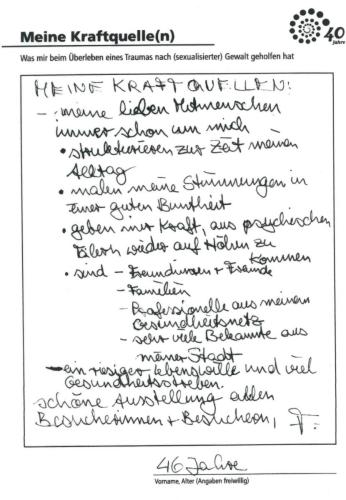 Meine Kraftquelle(n)
40
Jahre
Was mir beim Überleben eines Traumas nach (sexualisierter) Gewalt geholfen hat
MEINE KRAFTQUELLEN:
- meine lieben Mitmenschen
immer schon um mich
• strukturieren zur Zeit meinen
Alltag
• malen meine Stimmungen in
einer guten Buntheit
• geben mir Kraft, aus psychischen
Tälern wieder auf Höhen zu
kommen
• sind - Freundinnen + Freunde
- Familien
- Professionelle aus meinem
Gesundheitsnetz
- sehr viele Bekannte aus
meiner Stadt
- ein riesiger Lebenswille und viel
Gesundheitsstreben.
schöne Ausstellung allen
Besucherinnen + Besuchern,
46 Jahre
Vorname, Alter (Angaben freiwillig)